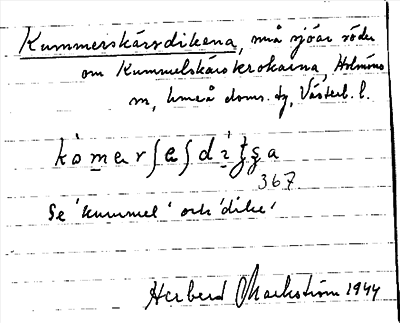 Kummerskärsdikena, små sjöar söder
om Kummelskärskrokarna, Holmöns
sn, Umeå doms. tg, Västerb. l.
367
Se 'kummel' och 'dike'
Herberd Markström 1944